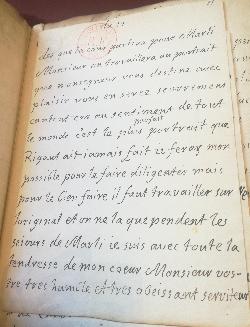 des que la cour partira pour Marli
Monsieur on travaillera au portrait
que monseigneur vous destine avec
plaisir vous en serez seurement
content car au sentiment de tout
le monde c'est le plus parfait portrait que
Rigaud ait jamais fait ie feray mon
possible pour le faire diligenter mais
pour le bien faire il faut travailler sur
l'original et on ne l'a que pendent les
seiours de Marli ie suis avec toute la
tendresse de mon coeur Monsieur vos-
tre tres humble et tres obeissant serviteur